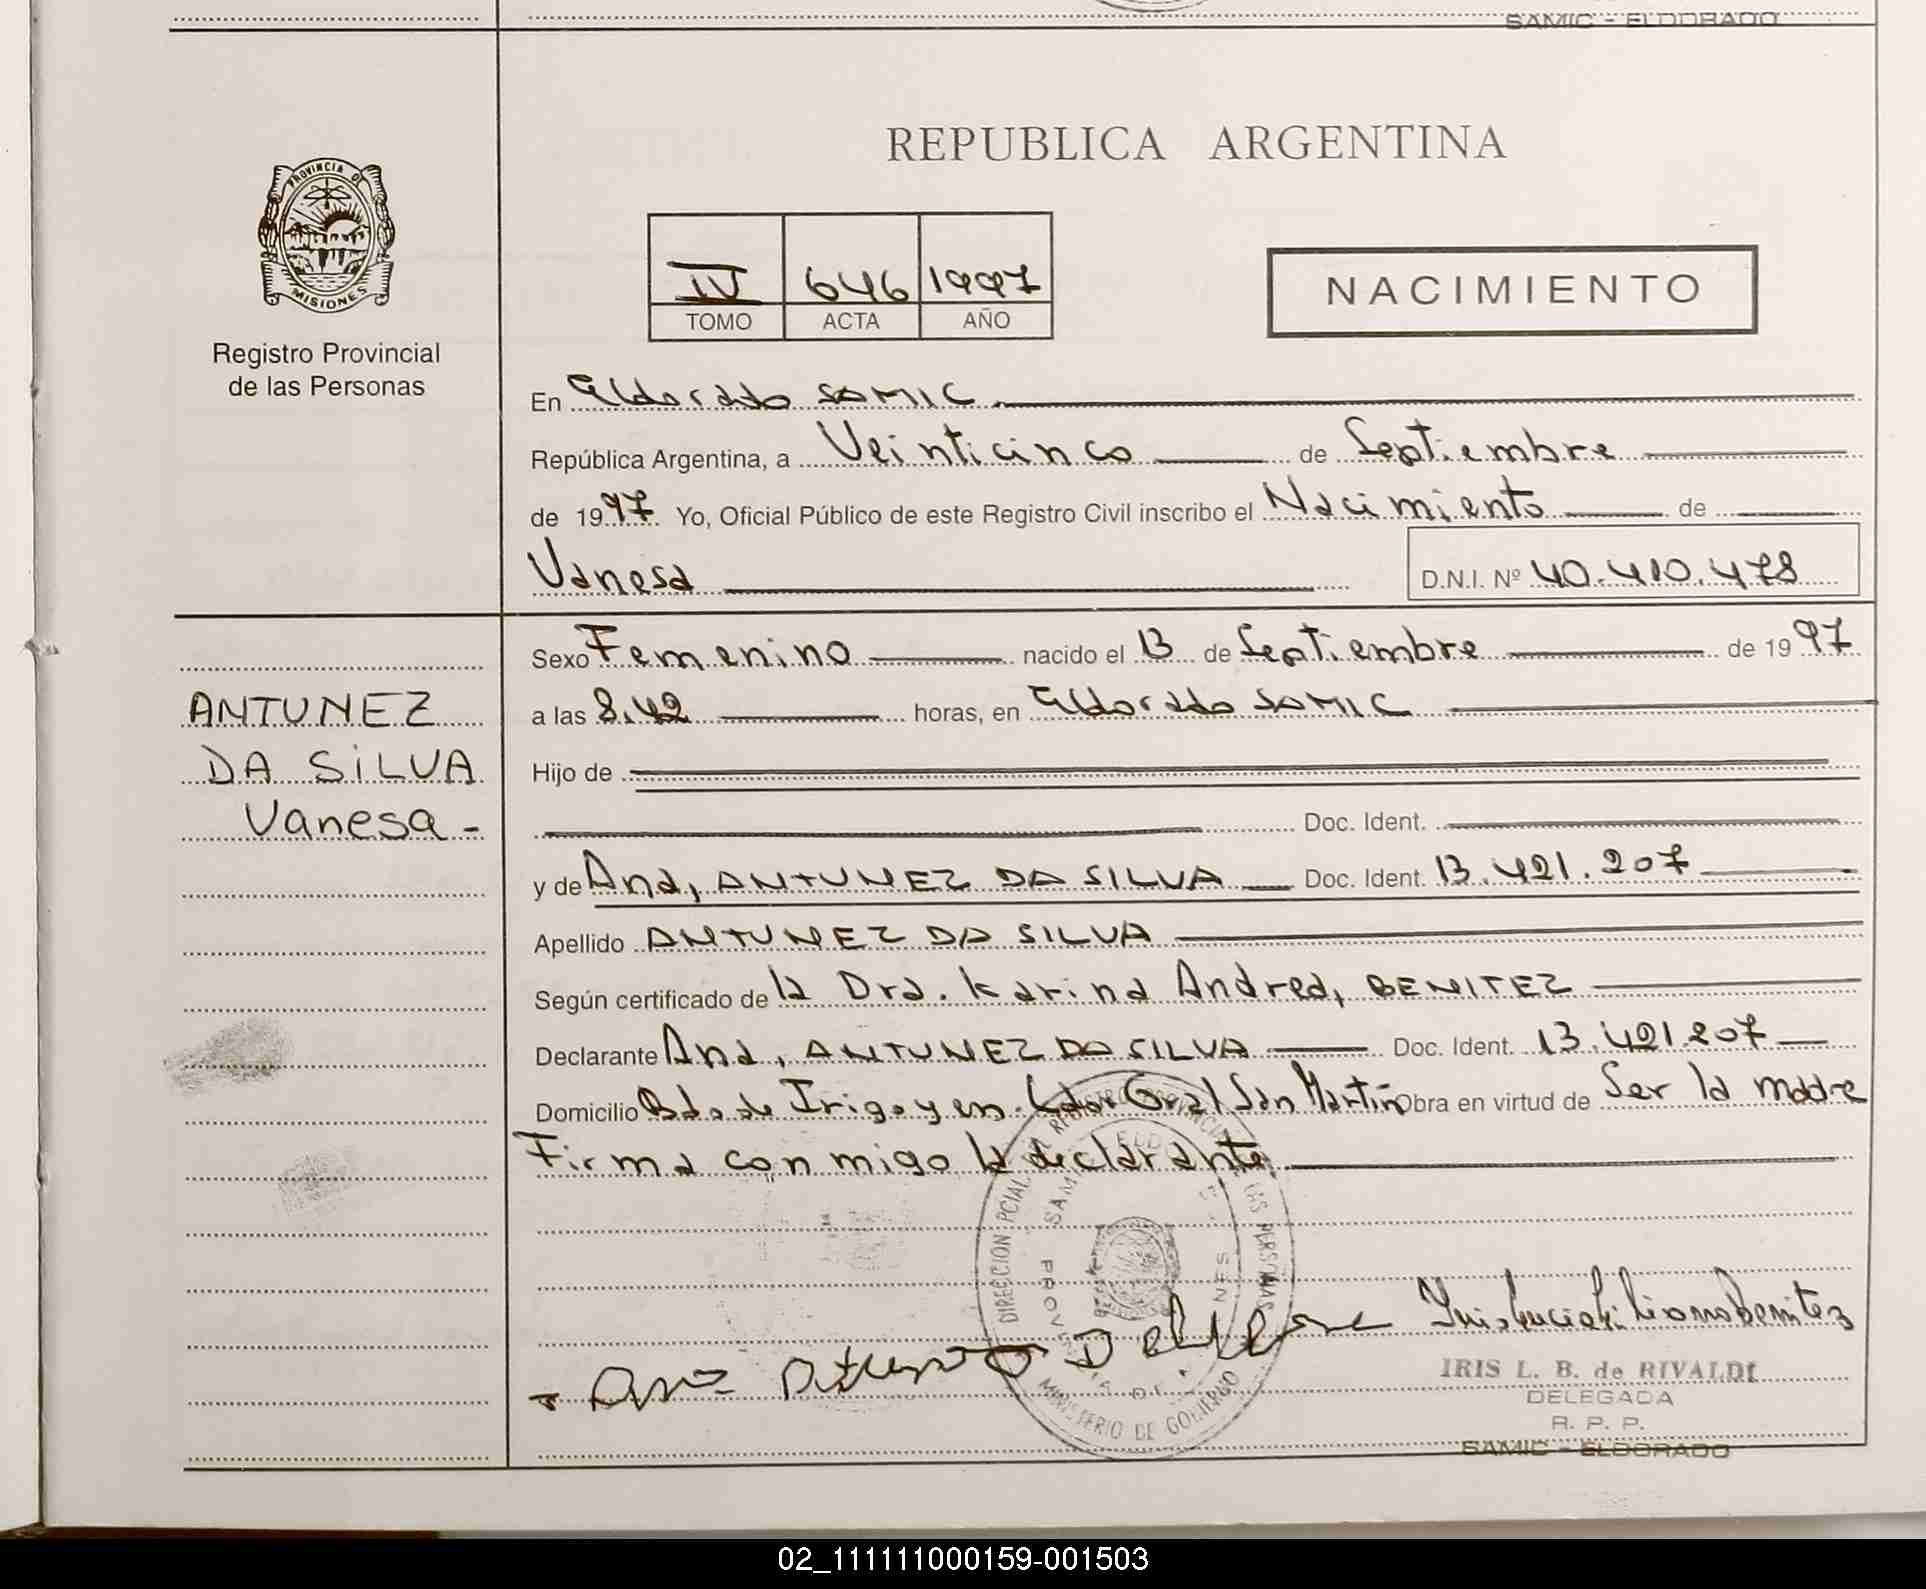 SAMIC - ELDORADO
PROVINCIA DE
MISIONES
Registro Provincial
de las Personas
REPUBLICA ARGENTINA
IV 646 1997
TOMO ACTA AÑO
NACIMIENTO
En Eldorado SAMIC
República Argentina, a Veinticinco de Septiembre
de 1997 Yo, Oficial Público de este Registro Civil inscribo el Nacimiento de
Vanesa D.N.I. Nº 40.410.478
ANTUNEZ
DA SILVA
Vanesa -
Sexo Femenino nacido el 13 de Septiembre de 1997
a las 8.42 horas, en Eldorado SAMIC
Hijo de
Doc. Ident.
y de Ana, ANTUNEZ DA SILVA Doc. Ident. 13.421.207
Apellido ANTUNEZ DA SILVA
Según certificado de la Dra. Karina Andrea, BENITEZ
Declarante Ana, ANTUNEZ DA SILVA Doc. Ident. 13.421.207
Domicilio Bdo de Irigoyen Gral San Martin Obra en virtud de Ser la madre
Firma conmigo la declarante
DIRECCION PCIAL. REGISTRO PROVINCIAL DE LAS PERSONAS
MINISTERIO DE GOBIERNO
IRIS L. B. de RIVALDI
DELEGADA
R. P. P.
SAMIC - ELDORADO
02_111111000159-001503